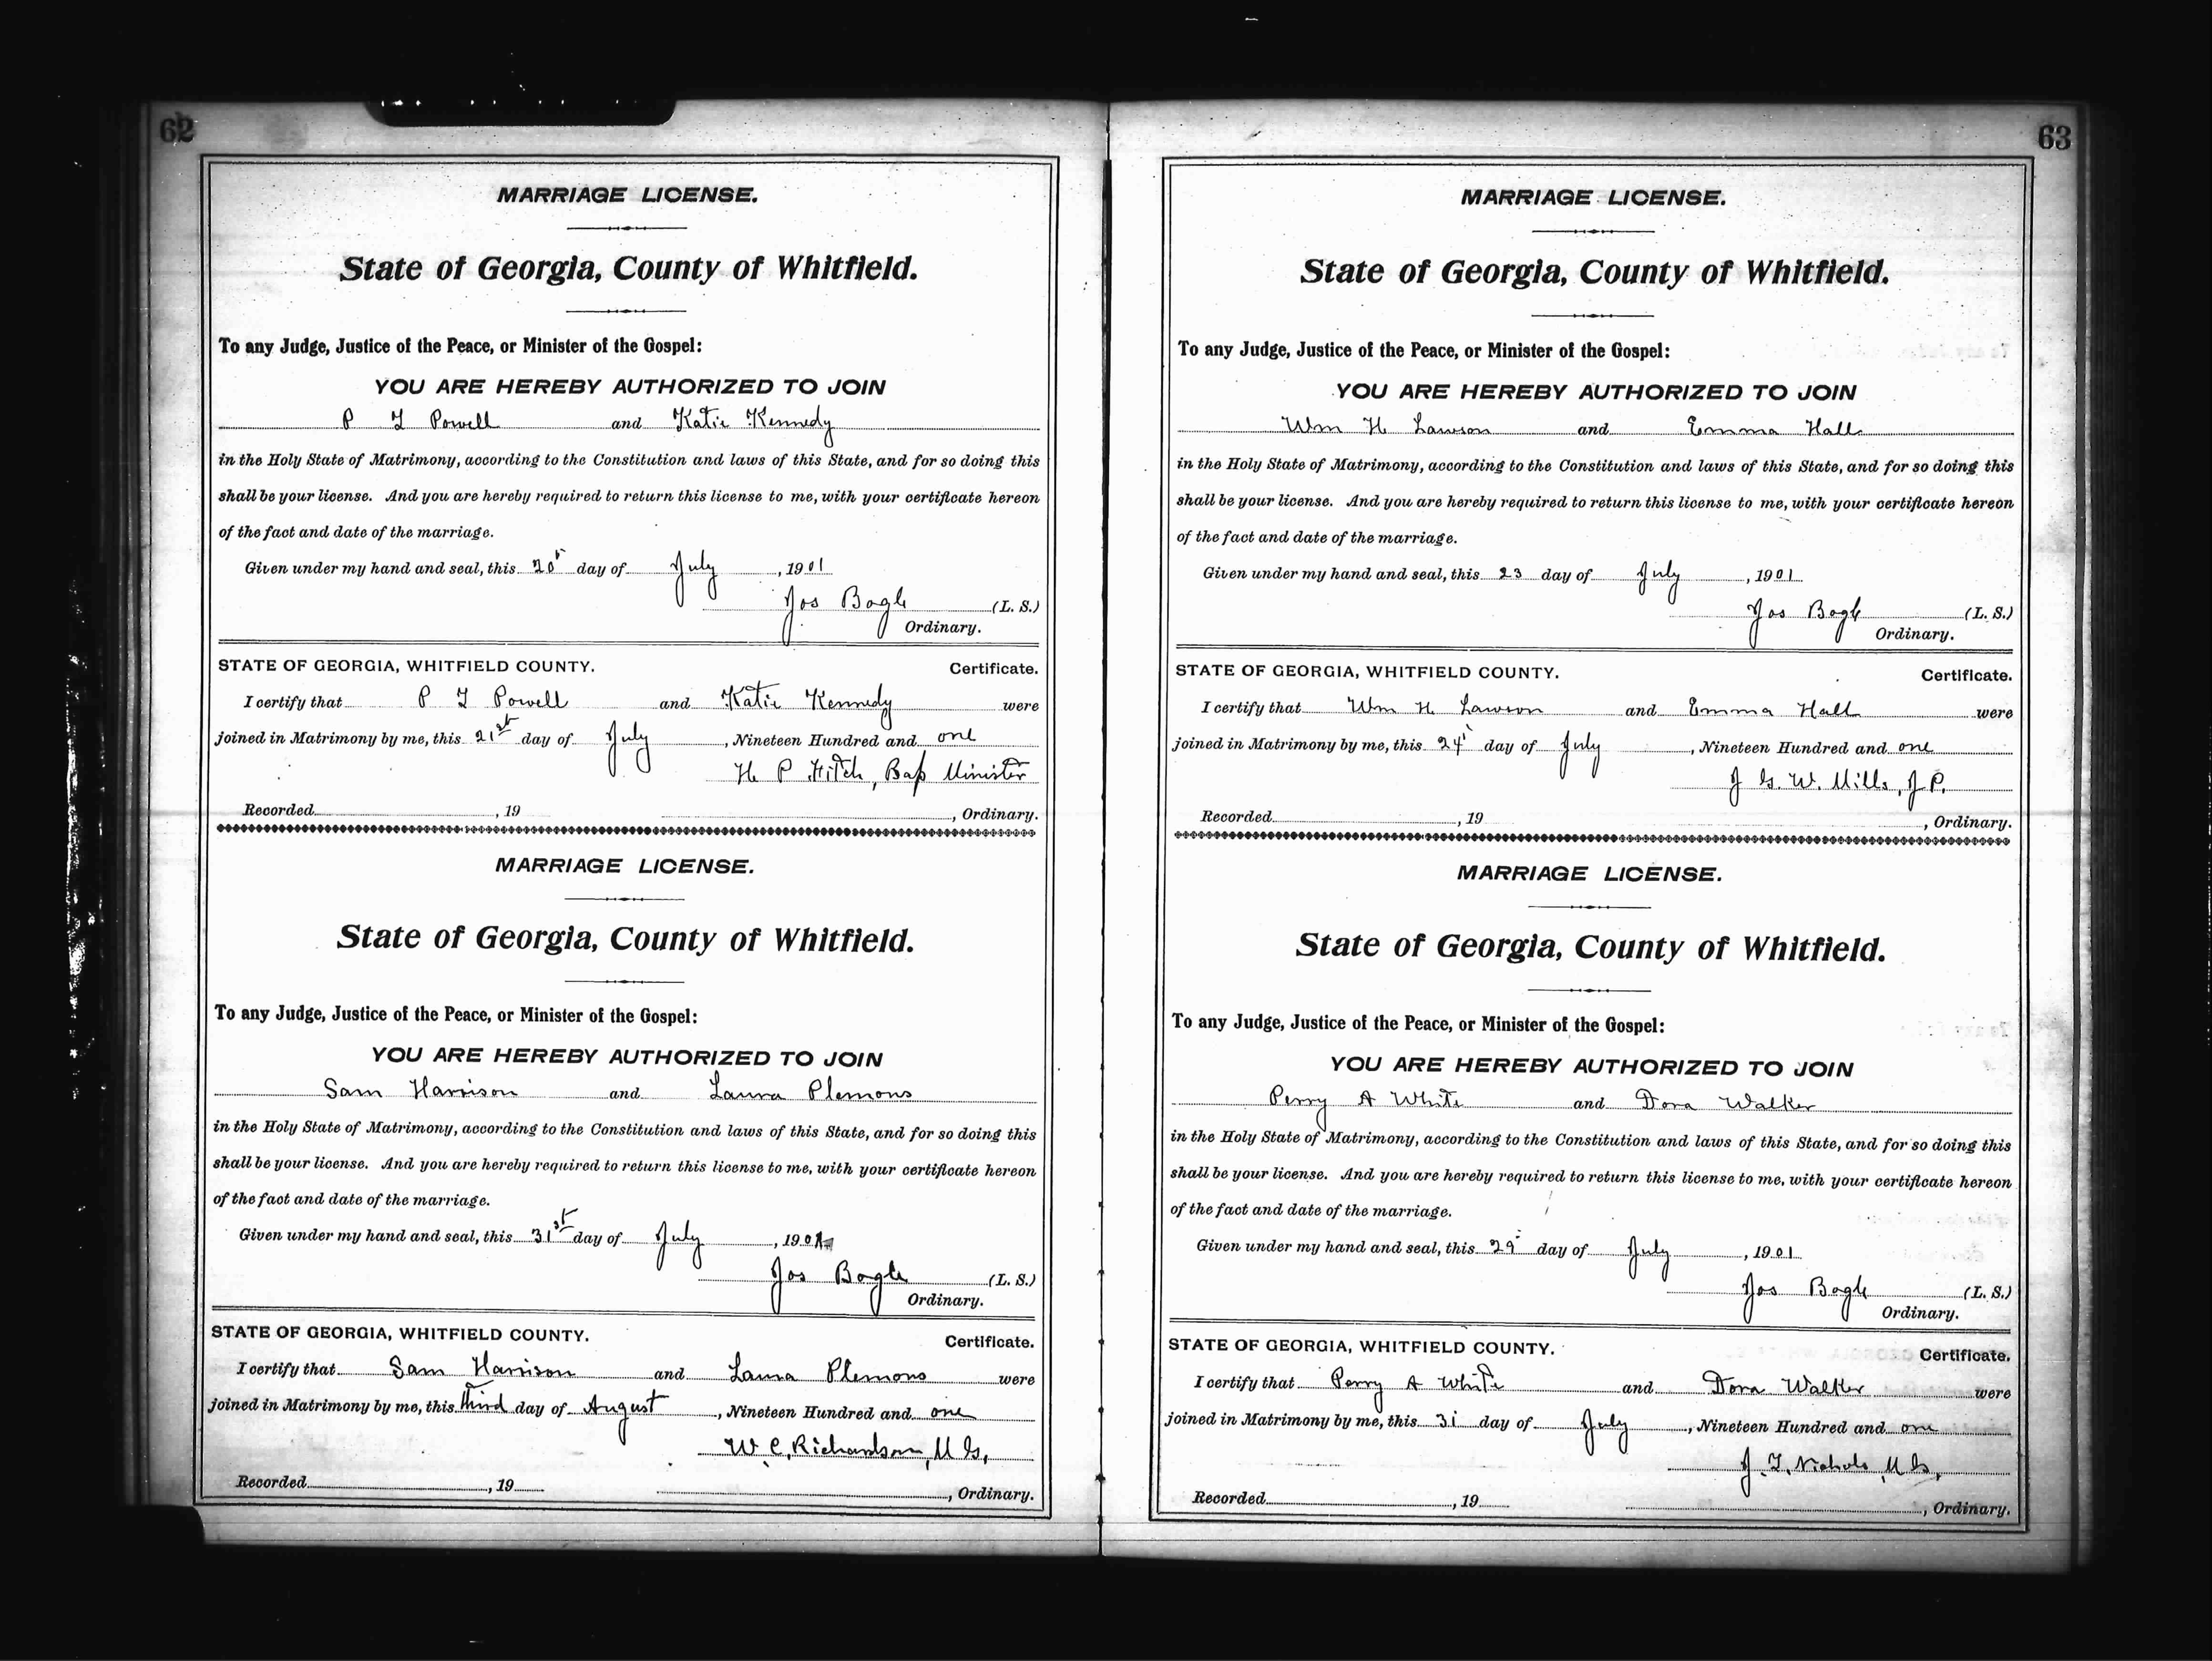 62
MARRIAGE LICENSE.
State of Georgia, County of Whitfield.
To any Judge, Justice of the Peace, or Minister of the Gospel:
YOU ARE HEREBY AUTHORIZED TO JOIN
P T Powell and Katie Kennedy
in the Holy State of Matrimony, according to the Constitution and laws of this State, and for so doing this
shall be your license. And you are hereby required to return this license to me, with your certificate hereon
of the fact and date of the marriage.
Given under my hand and seal, this 20 day of July, 1901
Jos Bogle (L. S.)
Ordinary.
STATE OF GEORGIA, WHITFIELD COUNTY. Certificate.
I certify that P T Powell and Katie Kennedy were
joined in Matrimony by me, this 21st day of July, Nineteen Hundred and one
H. P Fitch, Bap Minister
Recorded , 19 , Ordinary.
MARRIAGE LICENSE.
State of Georgia, County of Whitfield.
To any Judge, Justice of the Peace, or Minister of the Gospel:
YOU ARE HEREBY AUTHORIZED TO JOIN
Sam Harrison and Laura Plemons
in the Holy State of Matrimony, according to the Constitution and laws of this State, and for so doing this
shall be your license. And you are hereby required to return this license to me, with your certificate hereon
of the fact and date of the marriage.
Given under my hand and seal, this 31st day of July, 1901
Jos Bogle (L. S.)
Ordinary.
STATE OF GEORGIA, WHITFIELD COUNTY. Certificate.
I certify that Sam Harrison and Laura Plemons were
joined in Matrimony by me, this third day of August, Nineteen Hundred and one
W. C. Richardson, M G,
Recorded , 19 , Ordinary.
63
MARRIAGE LICENSE.
State of Georgia, County of Whitfield.
To any Judge, Justice of the Peace, or Minister of the Gospel:
YOU ARE HEREBY AUTHORIZED TO JOIN
Wm H Lawson and Emma Hall
in the Holy State of Matrimony, according to the Constitution and laws of this State, and for so doing this
shall be your license. And you are hereby required to return this license to me, with your certificate hereon
of the fact and date of the marriage.
Given under my hand and seal, this 23 day of July, 1901
Jos Bogle (L. S.)
Ordinary.
STATE OF GEORGIA, WHITFIELD COUNTY. Certificate.
I certify that Wm H Lawson and Emma Hall were
joined in Matrimony by me, this 24 day of July, Nineteen Hundred and one
J G. W. Mills, J P.
Recorded , 19 , Ordinary.
MARRIAGE LICENSE.
State of Georgia, County of Whitfield.
To any Judge, Justice of the Peace, or Minister of the Gospel:
YOU ARE HEREBY AUTHORIZED TO JOIN
Perry A White and Dora Walker
in the Holy State of Matrimony, according to the Constitution and laws of this State, and for so doing this
shall be your license. And you are hereby required to return this license to me, with your certificate hereon
of the fact and date of the marriage.
Given under my hand and seal, this 29 day of July, 1901
Jos Bogle (L. S.)
Ordinary.
STATE OF GEORGIA, WHITFIELD COUNTY. Certificate.
I certify that Perry A White and Dora Walker were
joined in Matrimony by me, this 31 day of July, Nineteen Hundred and one
J. T. Nichols, M G,
Recorded , 19 , Ordinary.